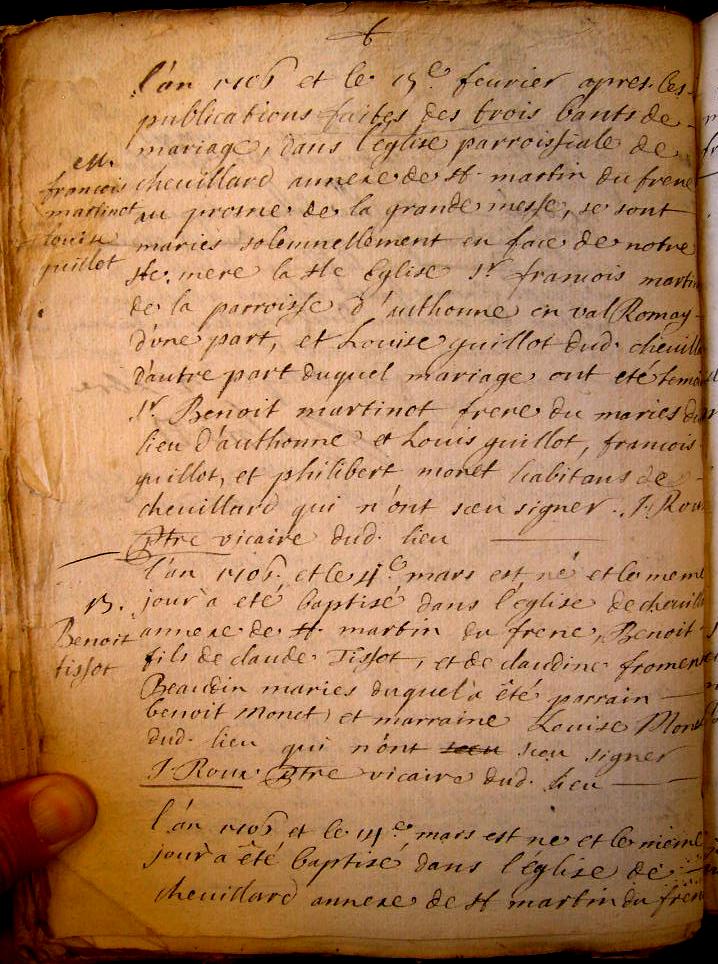 6
l'an 1706 et le 15e feurier apres les
publications faites des trois bants de
mariage, dans l'eglise parroissiale de
em.
francois
martinot
Louise
guillot
cheuillard annexe de st martin du frene
au prosne de la grande messe, se sont
maries solemnellement en face de notre
ste. mere la ste Eglise Sr francois martin
de la parroisse d'authonne en val Romay
d'vne part, et Louise guillot dud. cheuilla
d'autre part duquel mariage ont eté temo
Sr Benoit martinot frere du maries du
lieu d'authonne et Louis guillot, francois
guillot, et philibert monet habitans de
cheuillard qui n'ont sceu signer. J. Rou
Ptre vicaire dud. lieu
l'an 1706. et le 4e mars est né et le meme
B.
Benoit
tissot
jour a eté baptisé dans l'eglise de cheuill
annexe de st martin du frene, Benoit
fils de claude Tissot, et de claudine froment
Beaudin maries duquel a été parrain
benoit Monet, et marraine Louise Mone
dud. lieu qui n'ont sceu sceu signer
J. Roux Ptre vicaire dud. lieu
l'an 1706 et le 14e mars est ne et le meme
jour a été baptisé dans l'eglise de
cheuillard annexe de st martin du frene